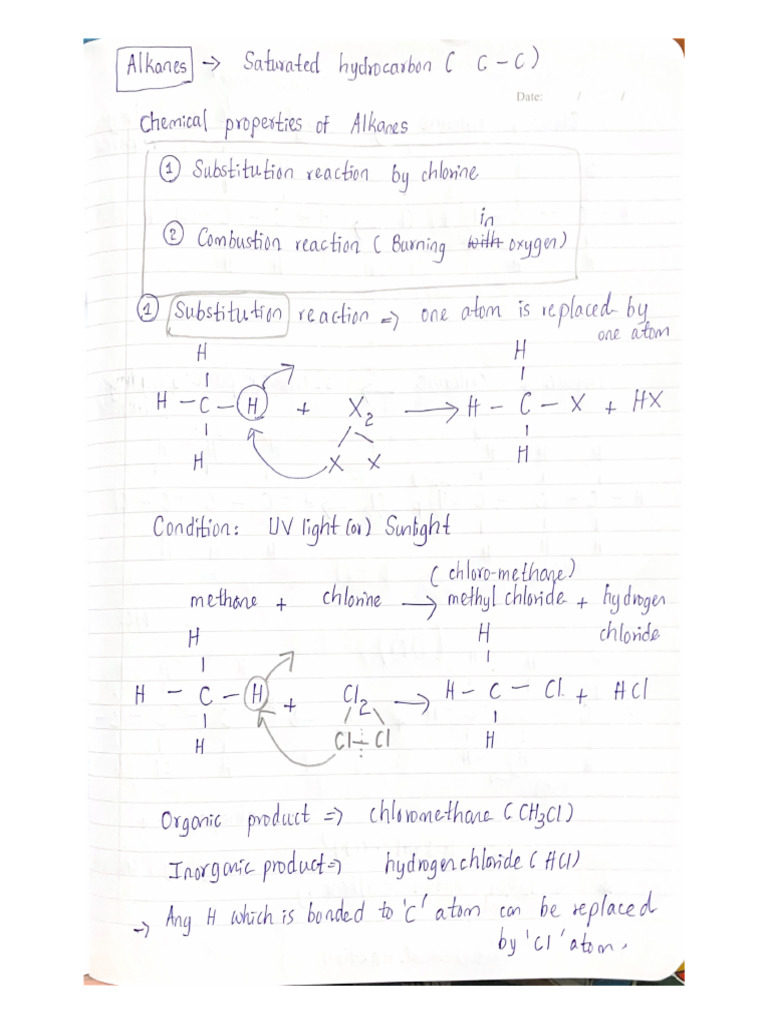 Alkanes → Saturated hydrocarbon ( C – C )
Date: / /
Chemical properties of Alkanes
① Substitution reaction by chlorine
② Combustion reaction ( Burning with in oxygen)
① Substitution reaction => one atom is replaced by
one atom
H H
H – C – H + X2 → H – C – X + HX
H X X H
Condition: UV light (or) Sunlight
(chloro-methane)
methane + chlorine → methyl chloride + hydrogen
chloride
H H
H – C – H + Cl2 → H – C – Cl + HCl
H Cl – Cl H
Organic product => chloromethane (CH3Cl)
Inorganic product => hydrogen chloride (HCl)
→ Any H which is bonded to 'C' atom can be replaced
by 'Cl' atom.